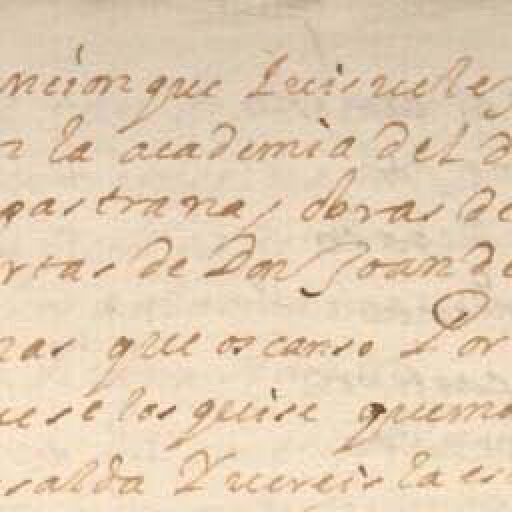 ncion que Luis uele
n la academia del d
pastrana, obras de
rtas de Don Joan de
nas que os canso Por
ue se los quise quema
salda Y uereis la es